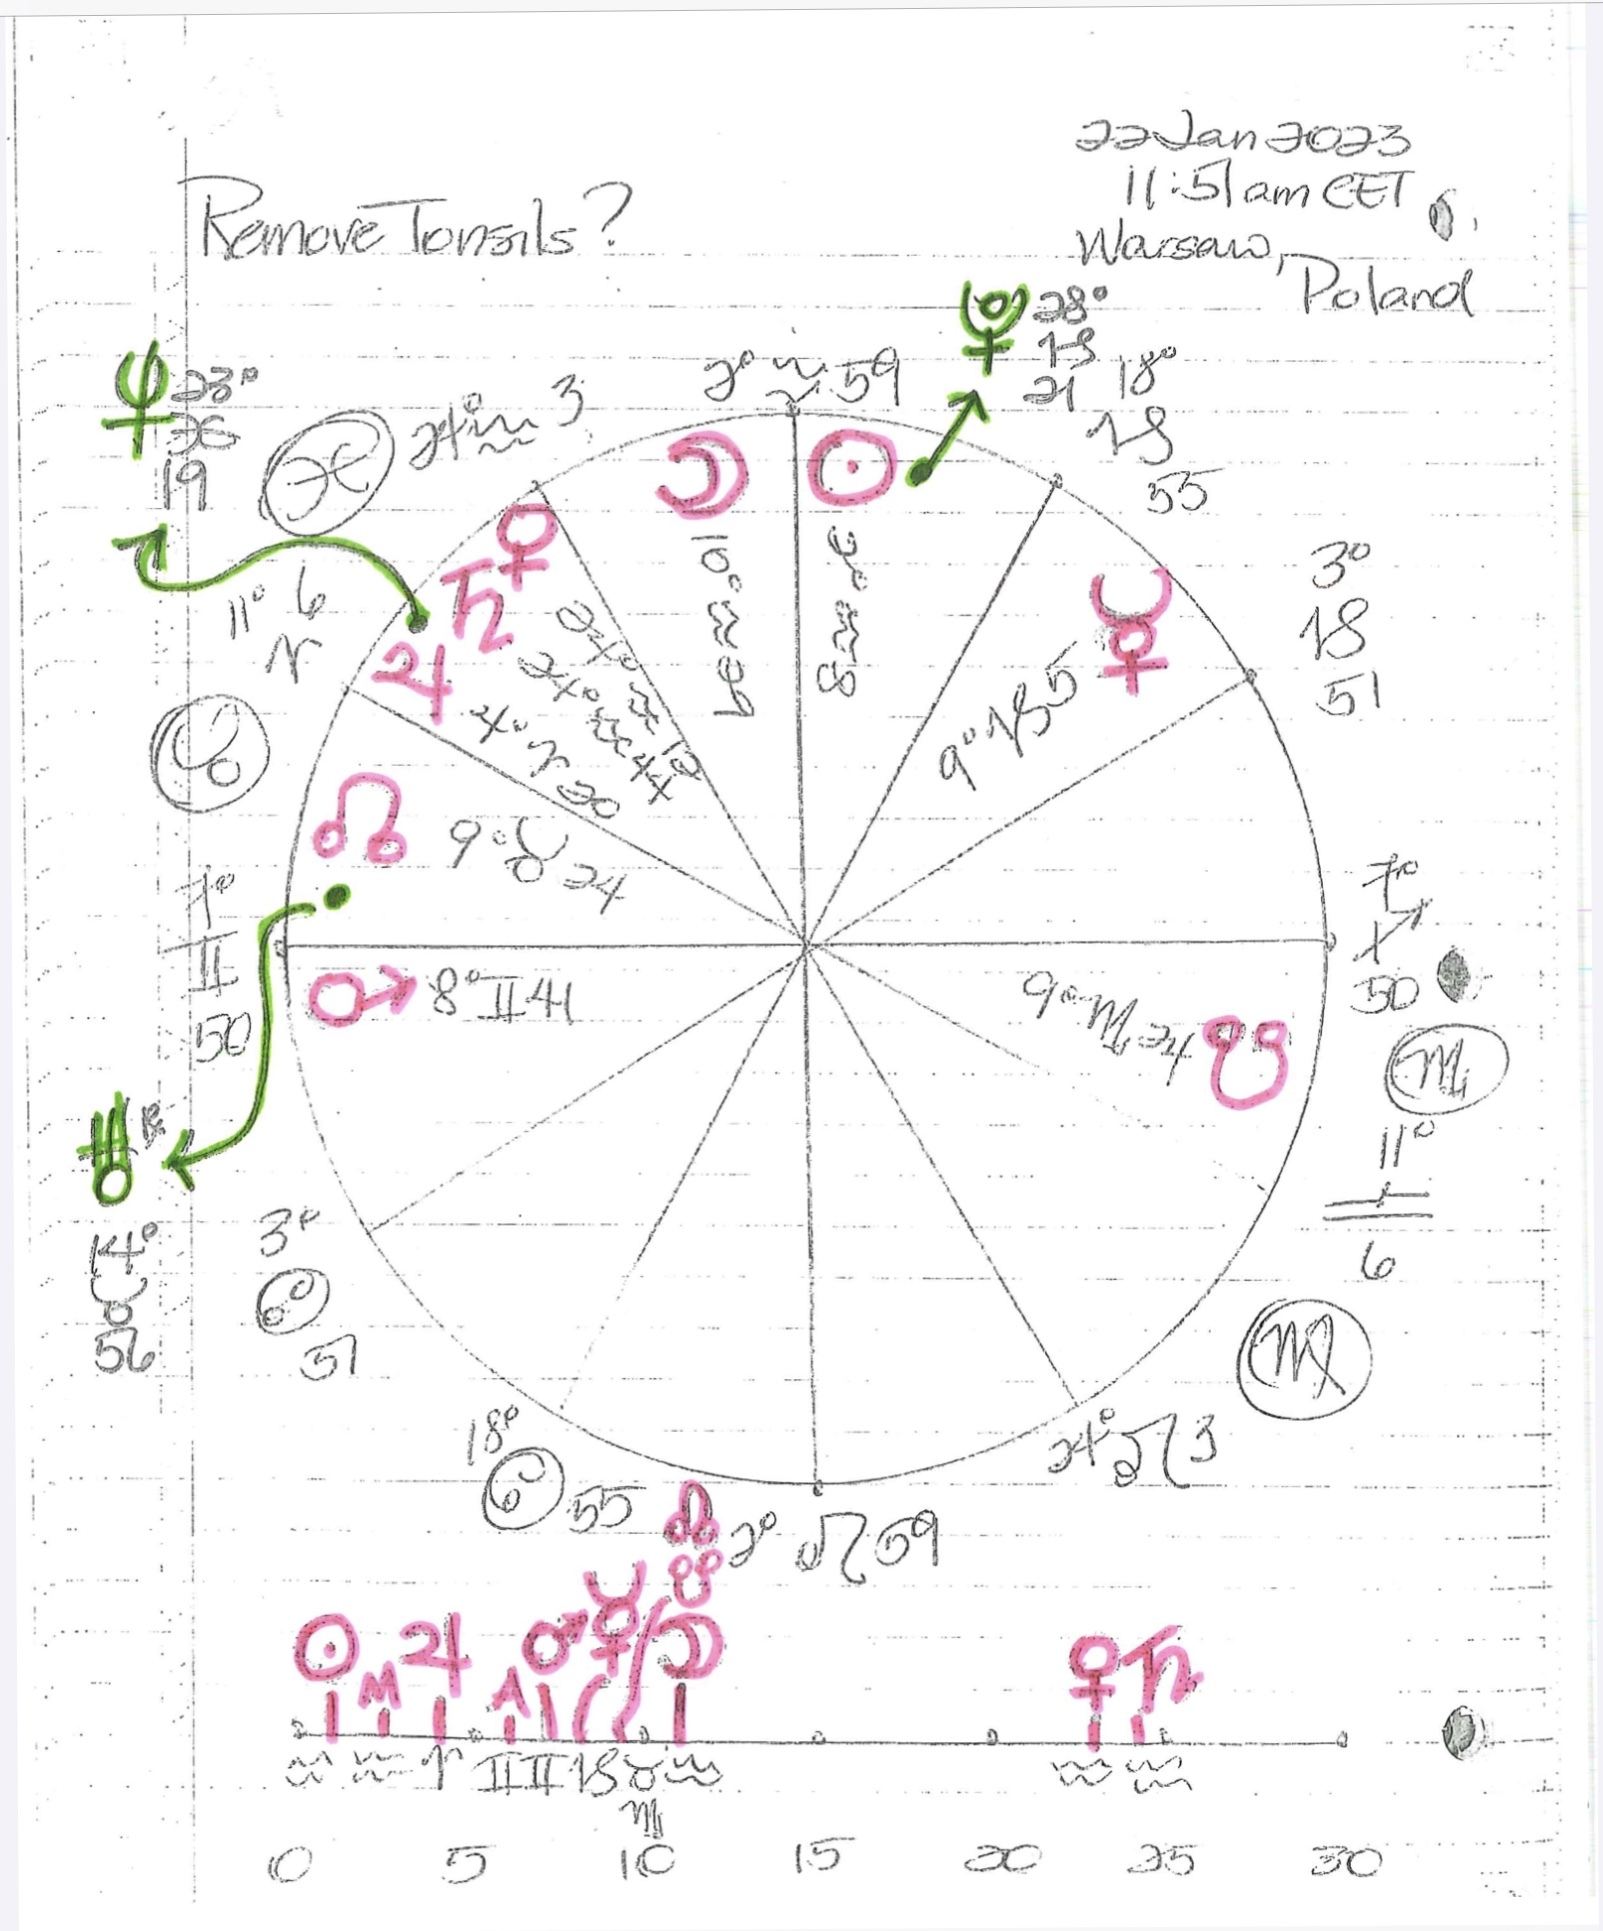 22 Jan 2023
11:51 am CET
Warsaw,
Poland
Remove Tonsils?
♇ 28°
♑
21
18°
♑
55
2° ♒ 59
♆ 23°
♓
19
♓
24° ♒ 3
☽
10° ♒ 59
☉
2° ♒ 8
♀
24° ♒ 12
♄
24° ♒ 44
♃
4° ♈ 20
11° 6
♈
☿
9° ♑ 5
3°
♑
51
♉
☊ 9° ♉ 24
7°
♊
50
♂ 8° ♊ 41
7°
♐
50
9° ♏ 24 ☋
♏
11°
♎
6
♅ ℞
14°
♉
56
3°
♋
51
♍
18°
♋ 55
2° ♌ 59
24° ♌ 3
☉ M ♃ A ♂ ☿ ☊ ☋ ☽ ♀ ♄
♒ ♒ ♈ ♊ ♊ ♑ ♉ ♒ ♒ ♒
♏
0 5 10 15 20 25 30